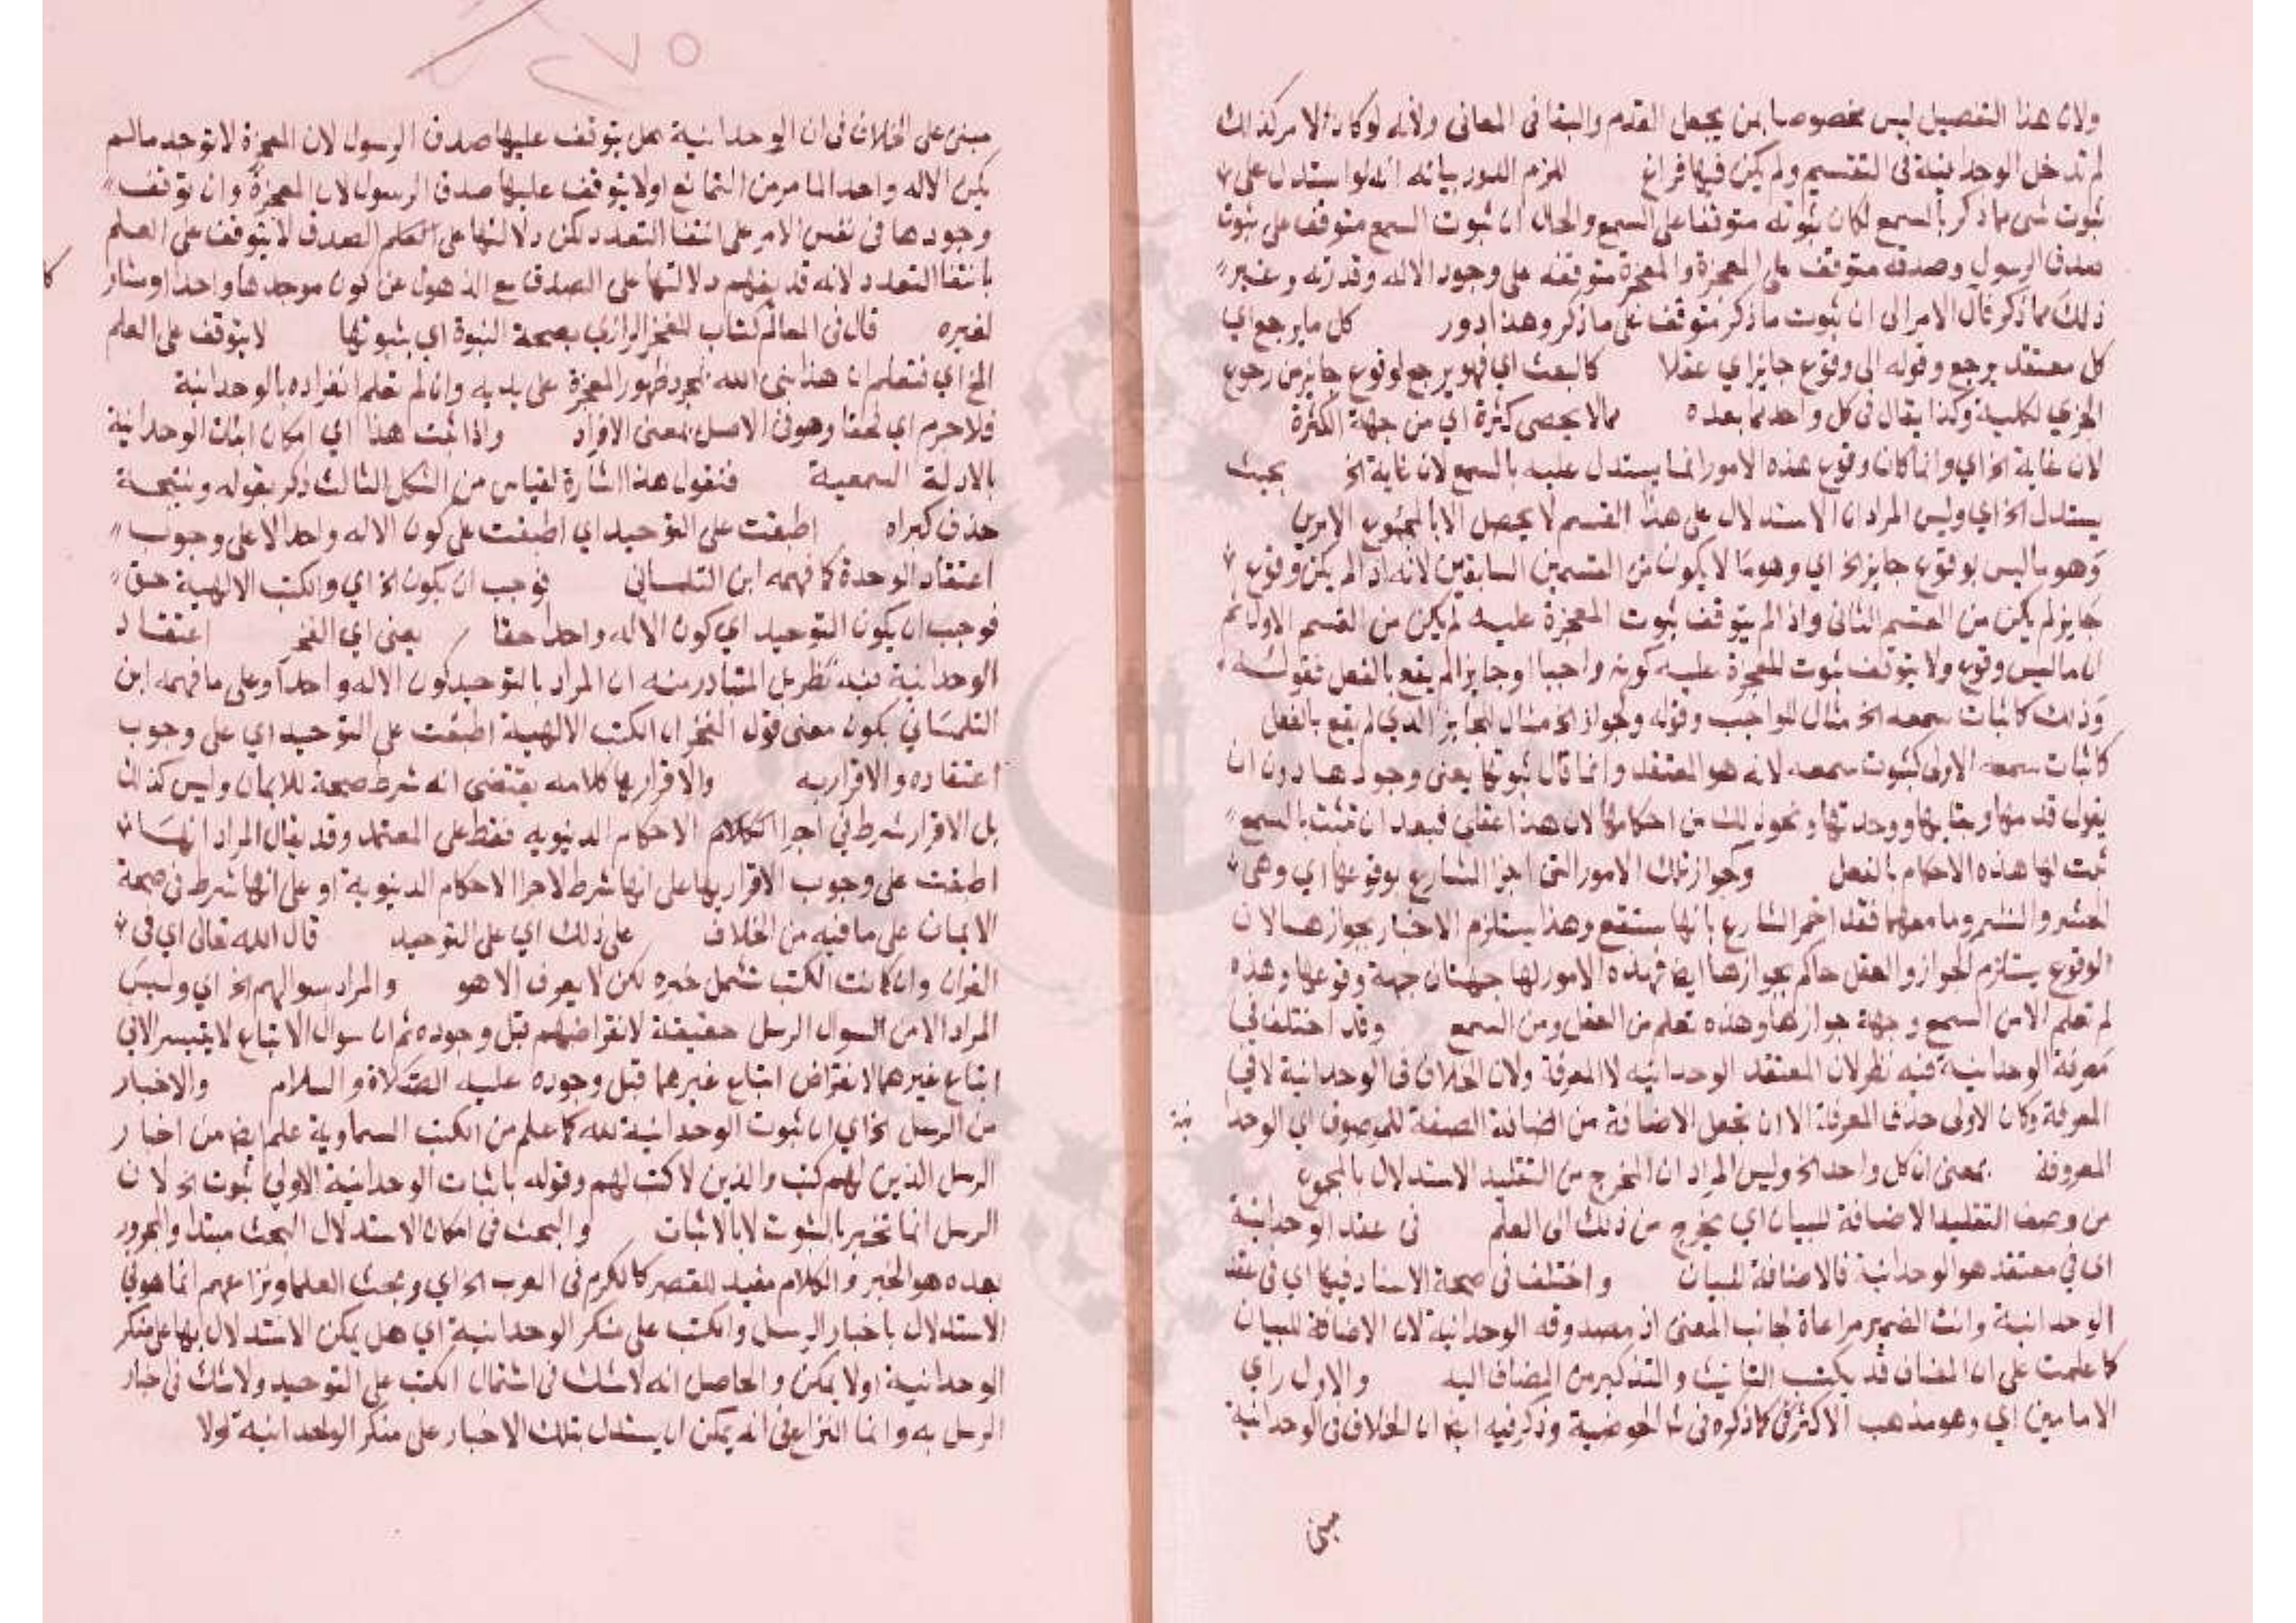 ولان هذا التفصيل ليس مخصوصا بمن يجعل القدم والبقا فى المعانى ولانه لوكان الامر كذلك
لم تدخل الوحدانية فى التقسيم ولم يكن فيها فراغ للزم الدور بيانه انه لو استدل على
ثبوت شى مما ذكر بالسمع لكان ثبوته متوقفا على السمع والحال ان ثبوت السمع متوقف على ثبوت
صدق الرسول وصدقه متوقف على المعجزة والمعجزة متوقفه على وجود الاله وقدرته وغير
ذلك مما ذكر فال الامر الى ان ثبوت ما ذكر متوقف على ما ذكر وهذا دور كل ما يرجع اي
كل معتقد يرجع وقوله الى وقوع جايز اي عقلا كالبعث اي فهو يرجع لوقوع جايز من رجوع
الجزي لكلية وكذا يقال فى كل واحد مما بعده مما لا يحصى كثرة اي من جهة الكثرة
لان غاية الخ اي وانما كان وقوع هذه الامور انما يستدل عليه بالسمع لان غاية الخ بحيث
يستدل الخ اي وليس المراد ان الاستدلال على هذا القسم لا يحصل الا بالمجموع الامرين
وهو ما ليس بوقوع جايز الخ اي وهو ما لا يكون من القسمين السابقين لانه اذا لم يكن وقوع
جايز لم يكن من القسم الثانى واذا لم يتوقف ثبوت المعجزة عليه لم يكن من القسم الاول ثم
ان ما ليس وقوع ولا يتوقف ثبوت المعجزة عليه كونه واجبا او جايزا لم يقع بالفعل فقوله
وذلك كاثبات سمعه الخ مثال للواجب وقوله وجواز الخ مثال للجايز الذي لم يقع بالفعل
كاثبات سمعه الاولى كثبوت سمعه لانه هو المعتقد وانما قال ثبوتها يعنى وجودها دون ان
يقول قدمها وبقايها ووحدتها ونحو ذلك من احكامها لان هذا عقلى فبعد ان تثبت بالسمع
ثبت لها هذه الاحكام بالفعل وكجواز تلك الامور التى اخبر الشارع بوقوعها اي وهى
الحشر والنشر وما معهما فقد اخبر الشارع بانها ستقع وهذا يستلزم الاخبار بجوازها لان
الوقوع يستلزم الجواز والعقل حاكم بجوازها ايضا فهذه الامور لها جهتان جهة وقوعها وهذه
لم تعلم الا من السمع وجهة جوازها وهذه تعلم من العقل ومن السمع وقد اختلف فى
معرفة الوحدانية فيه نظر لان المعتقد الوحدانيه لا المعرفة ولان الخلاف فى الوحدانية لا فى
المعرفة وكان الاولى حذف المعرفة الا ان تجعل الاضافة من اضافة الصفة للموصوف اي الوحدا
نية
المعروفة بمعنى ان كل واحد الخ وليس المراد ان المخرج من التقليد الاستدلال بالمجموع
من وصف التقليد الاضافة للبيان اي يخرج من ذلك الى العلم فى عقد الوحدانية
اى في معتقد هو الوحدانية فالاضافة للبيان واختلف فى صحة الاسناد فيها اي فى عقد
الوحدانية وانث الضمير مراعاة لجانب المعنى اذ مصدوقه الوحدانية لان الاضافة للبيان
كما علمت على ان المضاف قد يكتسب التانيث والتذكير من المضاف اليه والاول راي
الامامين اي وهو مذهب الاكثر كما ذكره فى الحوضية وذكر فيه ايضا ان الخلاف فى الوحدانية
مبنى
مبنى على الخلاف فى ان الوحدانية هل يتوقف عليها صدق الرسول لان المعجزة لا توجد مالم
يكن الاله واحدا لما مر من التمانع او لا يتوقف عليها صدق الرسول لان المعجزة وان توقف
وجودها فى نفس الامر على انتفا التعدد لكن دلالتها على الصدق لا يتوقف على العلم
بانتفا التعدد لانه قد يفهم دلالتها على الصدق مع الذهول عن كون موجدها واحدا ومشار
كا
لغيره قال فى المعالم كتاب للفخر الرازي بصحة النبوة اي بثبوتها لا يتوقف على العلم
الخ اي فنعلم ان هذا نبى الله بمجرد ظهور المعجزة على يديه وان لم تعلم انفراده بالوحدانية
فلا جرم اي فحقا وهو فى الاصل بمعنى الافراد واذا ثبت هذا اي امكان اثبات الوحدانية
بالادلة السمعية فنقول هذا اشارة لقياس من الشكل الثالث ذكر بقوله ونتيجة
حذف كبراه اطبقت على التوحيد اي اطبقت على كون الاله واحدا لا على وجوب
اعتقاد الوحدة كما فهمه ابن التلمسانى فوجب ان يكون الخ اي والكتب الالهية حق
فوجب ان يكون التوحيد اي كون الاله واحدا حقا يعنى اي الفخر اعتقاد
الوحدانية فيه نظر بل المتبادر منه ان المراد بالتوحيد كون الاله واحدا وعلى ما فهمه ابن
التلمساني يكون معنى قول الفخر ان الكتب الالهية اطبقت على التوحيد اي على وجوب
اعتقاده والاقرار به والاقرار بها كلامه يقتضى انه شرط صحة للايمان وليس كذلك
بل الاقرار شرط في اجرا الكلام الاحكام الدنيويه فقط على المعتمد وقد يقال المراد انها
اطبقت على وجوب الاقرار بها على انها شرط لاجرا الاحكام الدنيوية او على انها شرط فى صحة
الايمان على ما فيه من الخلاف على ذلك اي على التوحيد قال الله تعالى اي فى
القران وان كانت الكتب تشمل غيره لكن لا يعرف الا هو والمراد سوالهم الخ اي وليس
المراد الامن السوال الرسل حقيقة لانقراضهم قبل وجوده ثم ان سوال الاتباع لا يتيسر الا في
اتباع غيرهما لانقراض اتباع غيرهما قبل وجوده عليه الصلاة والسلام والاخبار
من الرسل الخ اي ان ثبوت الوحدانية لله كما علم من الكتب السماوية علم ايضا من اخبار
الرسل الذين لهم كتب والذين لا كتب لهم وقوله باثبات الوحدانية الاولى ثبوت الخ لان
الرسل انما تخبر بالثبوت لا بالاثبات والبحث فى امكان الاستدلال البحث مبتدا والمجرور
بعده هو الخبر والكلام مفيد للقصر كالكرم فى العرب الخ اي وبحث العلما ونزاعهم انما هو في
الاستدلال باخبار الرسل والكتب على منكر الوحدانية اي هل يمكن الاستدلال بها على منكر
الوحدانية اولا يمكن والحاصل انه لا شك فى اشتمال الكتب على التوحيد ولا شك فى اخبار
الرسل به وانما النزاع فى انه يمكن ان يستدل بتلك الاخبار على منكر الوحدانية اولا